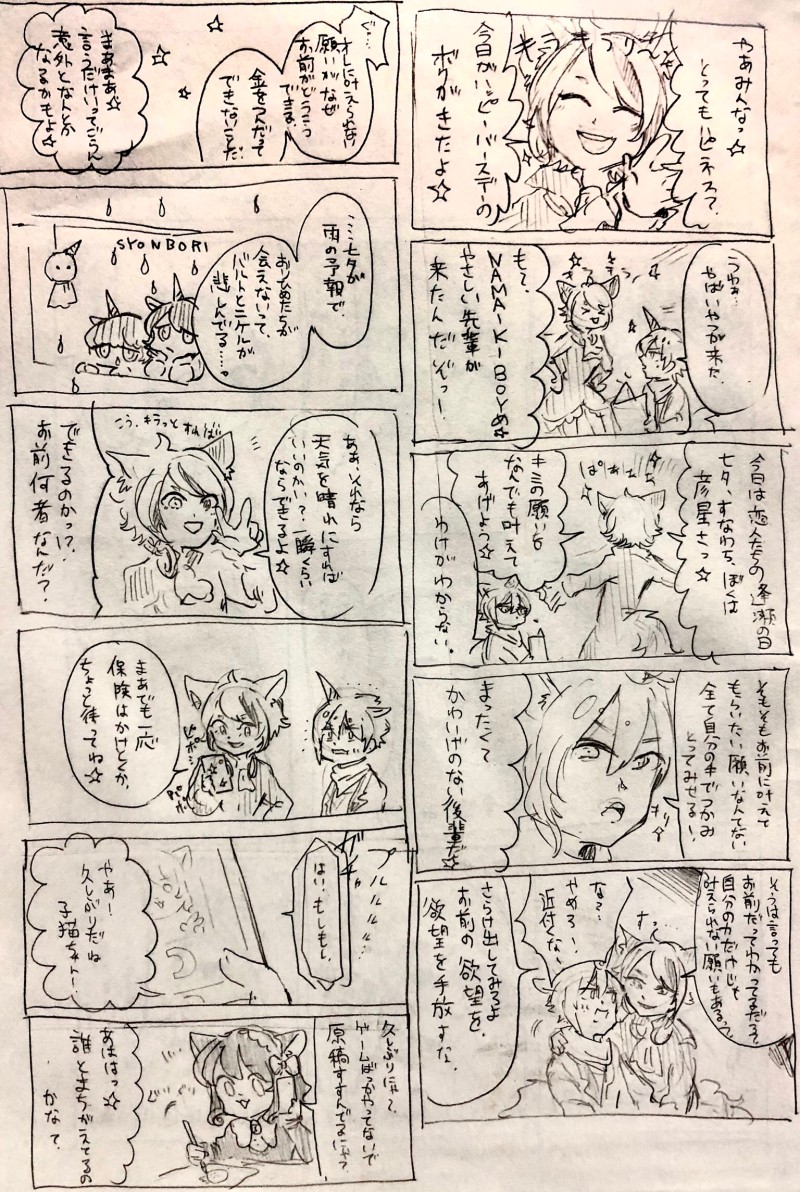 やぁみんなっ☆
とってもハピネス?
キラキラリーン
今日がハッピーバースデーの
ボクがきたよ☆
うわぁ…
やばいやつが来た
キラキラ
も〜、
NAMAIKIBOYめ☆
やさしい先輩が
来たんだぞっー
今日は恋人たちの逢瀬の日
七夕、すなわち、ぼくは
彦星さっ☆
ぱぁぁぁ
キミの願いも
なんでも叶えて
すげよっ☆
わけがわからない。
そもそもお前に叶えて
もらいたい願いなんてない
全て自分の手でつかみ
とってみせる!、
キリッ
まったくて
かわいげのない後輩だ☆
そうは言っても
お前だってわかってるだろ?
自分の力だけじゃ
叶えられない願いもあるって
すっ
な…、
やめろ!
近付くな
さらけ出してみろよ
お前の欲望を、
欲望を手放すな。
ぐ…
オレに叶えられない
願いがなぜ
お前がどうこう
できる、
金をつんだって
できないことだ、
まあまあ☆
言うだけいってごらん
意外となんとか
なるかもよ☆
……七夕が
雨の予報で、
おりひめたちが
会えないって、
バルトとニケルが
悲しんでる…。
SYONBORI
ああ、それなら
天気を晴れにすれば
いいのかい?一瞬くらい
ならできるよ☆
こう、キラっとすれば
できるのかっ!?、
お前何者なんだ?
まあでも一応
保険はかけとくか、
ちょっと待ってね☆
ピポ…
パポ
プルルルル…
ガチャ
はい!もしもし、
やあー
久しぶりだね
子猫ちゃん!
久しぶりにゃ〜、
ゲームばっかやってないで
原稿すすんでるにゃ?
あははっ☆
誰とまちがえてるの
かな?、